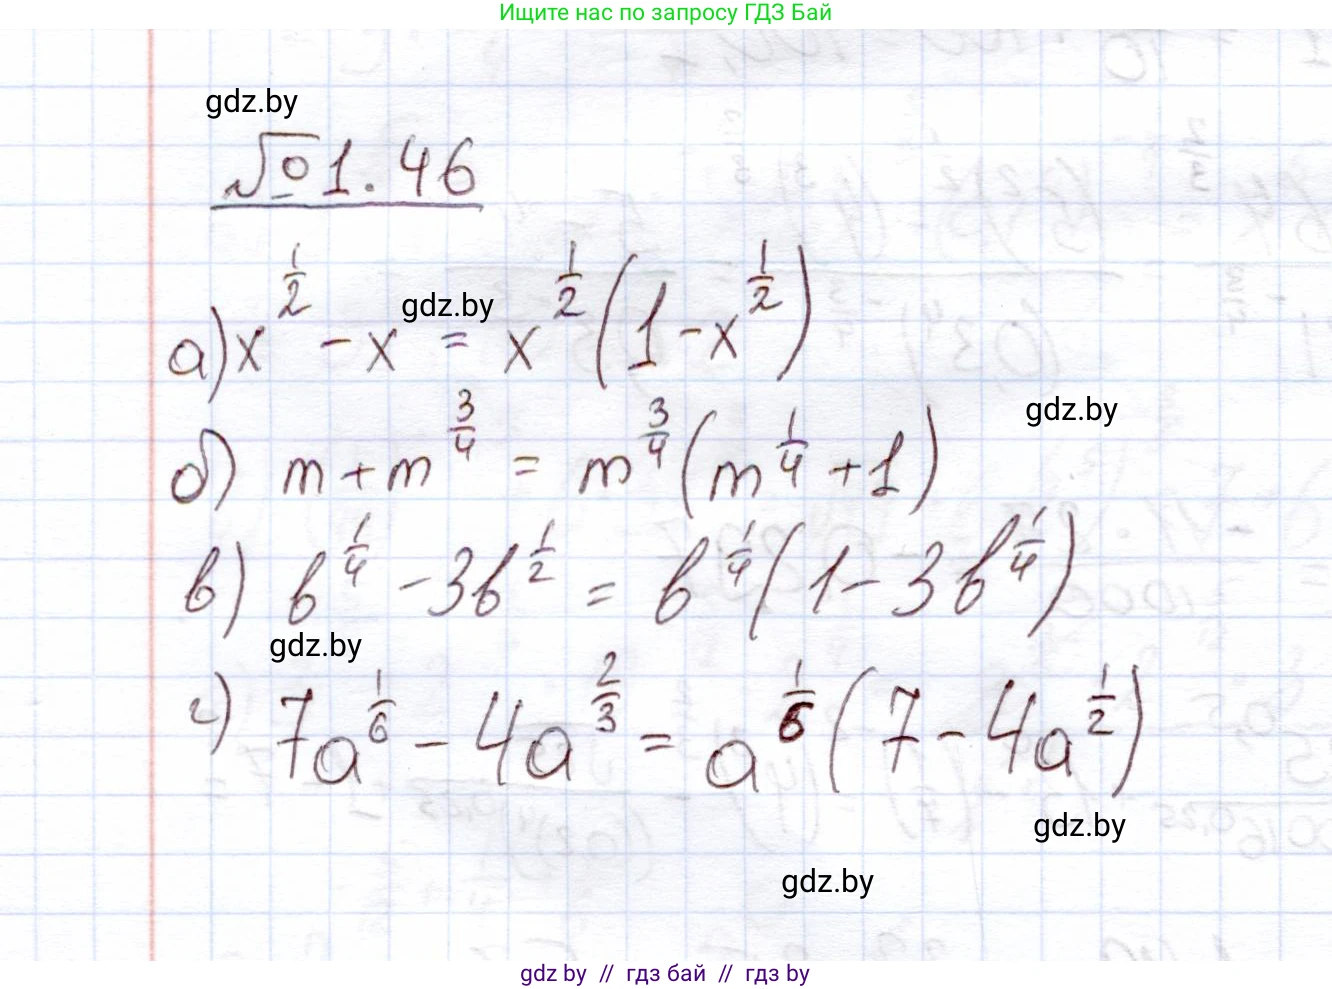 Ищите нас по запросу ГДЗ Бай
gdz.by
№1.46
а) x^(1/2) - x = x^(1/2)(1 - x^(1/2))
gdz.by
gdz.by
б) m + m^(3/4) = m^(3/4)(m^(1/4) + 1)
в) b^(1/4) - 3b^(1/2) = b^(1/4)(1 - 3b^(1/4))
gdz.by
г) 7a^(1/6) - 4a^(2/3) = a^(1/6)(7 - 4a^(1/2))
gdz.by
gdz.by
gdz by // гдз бай // гдз by